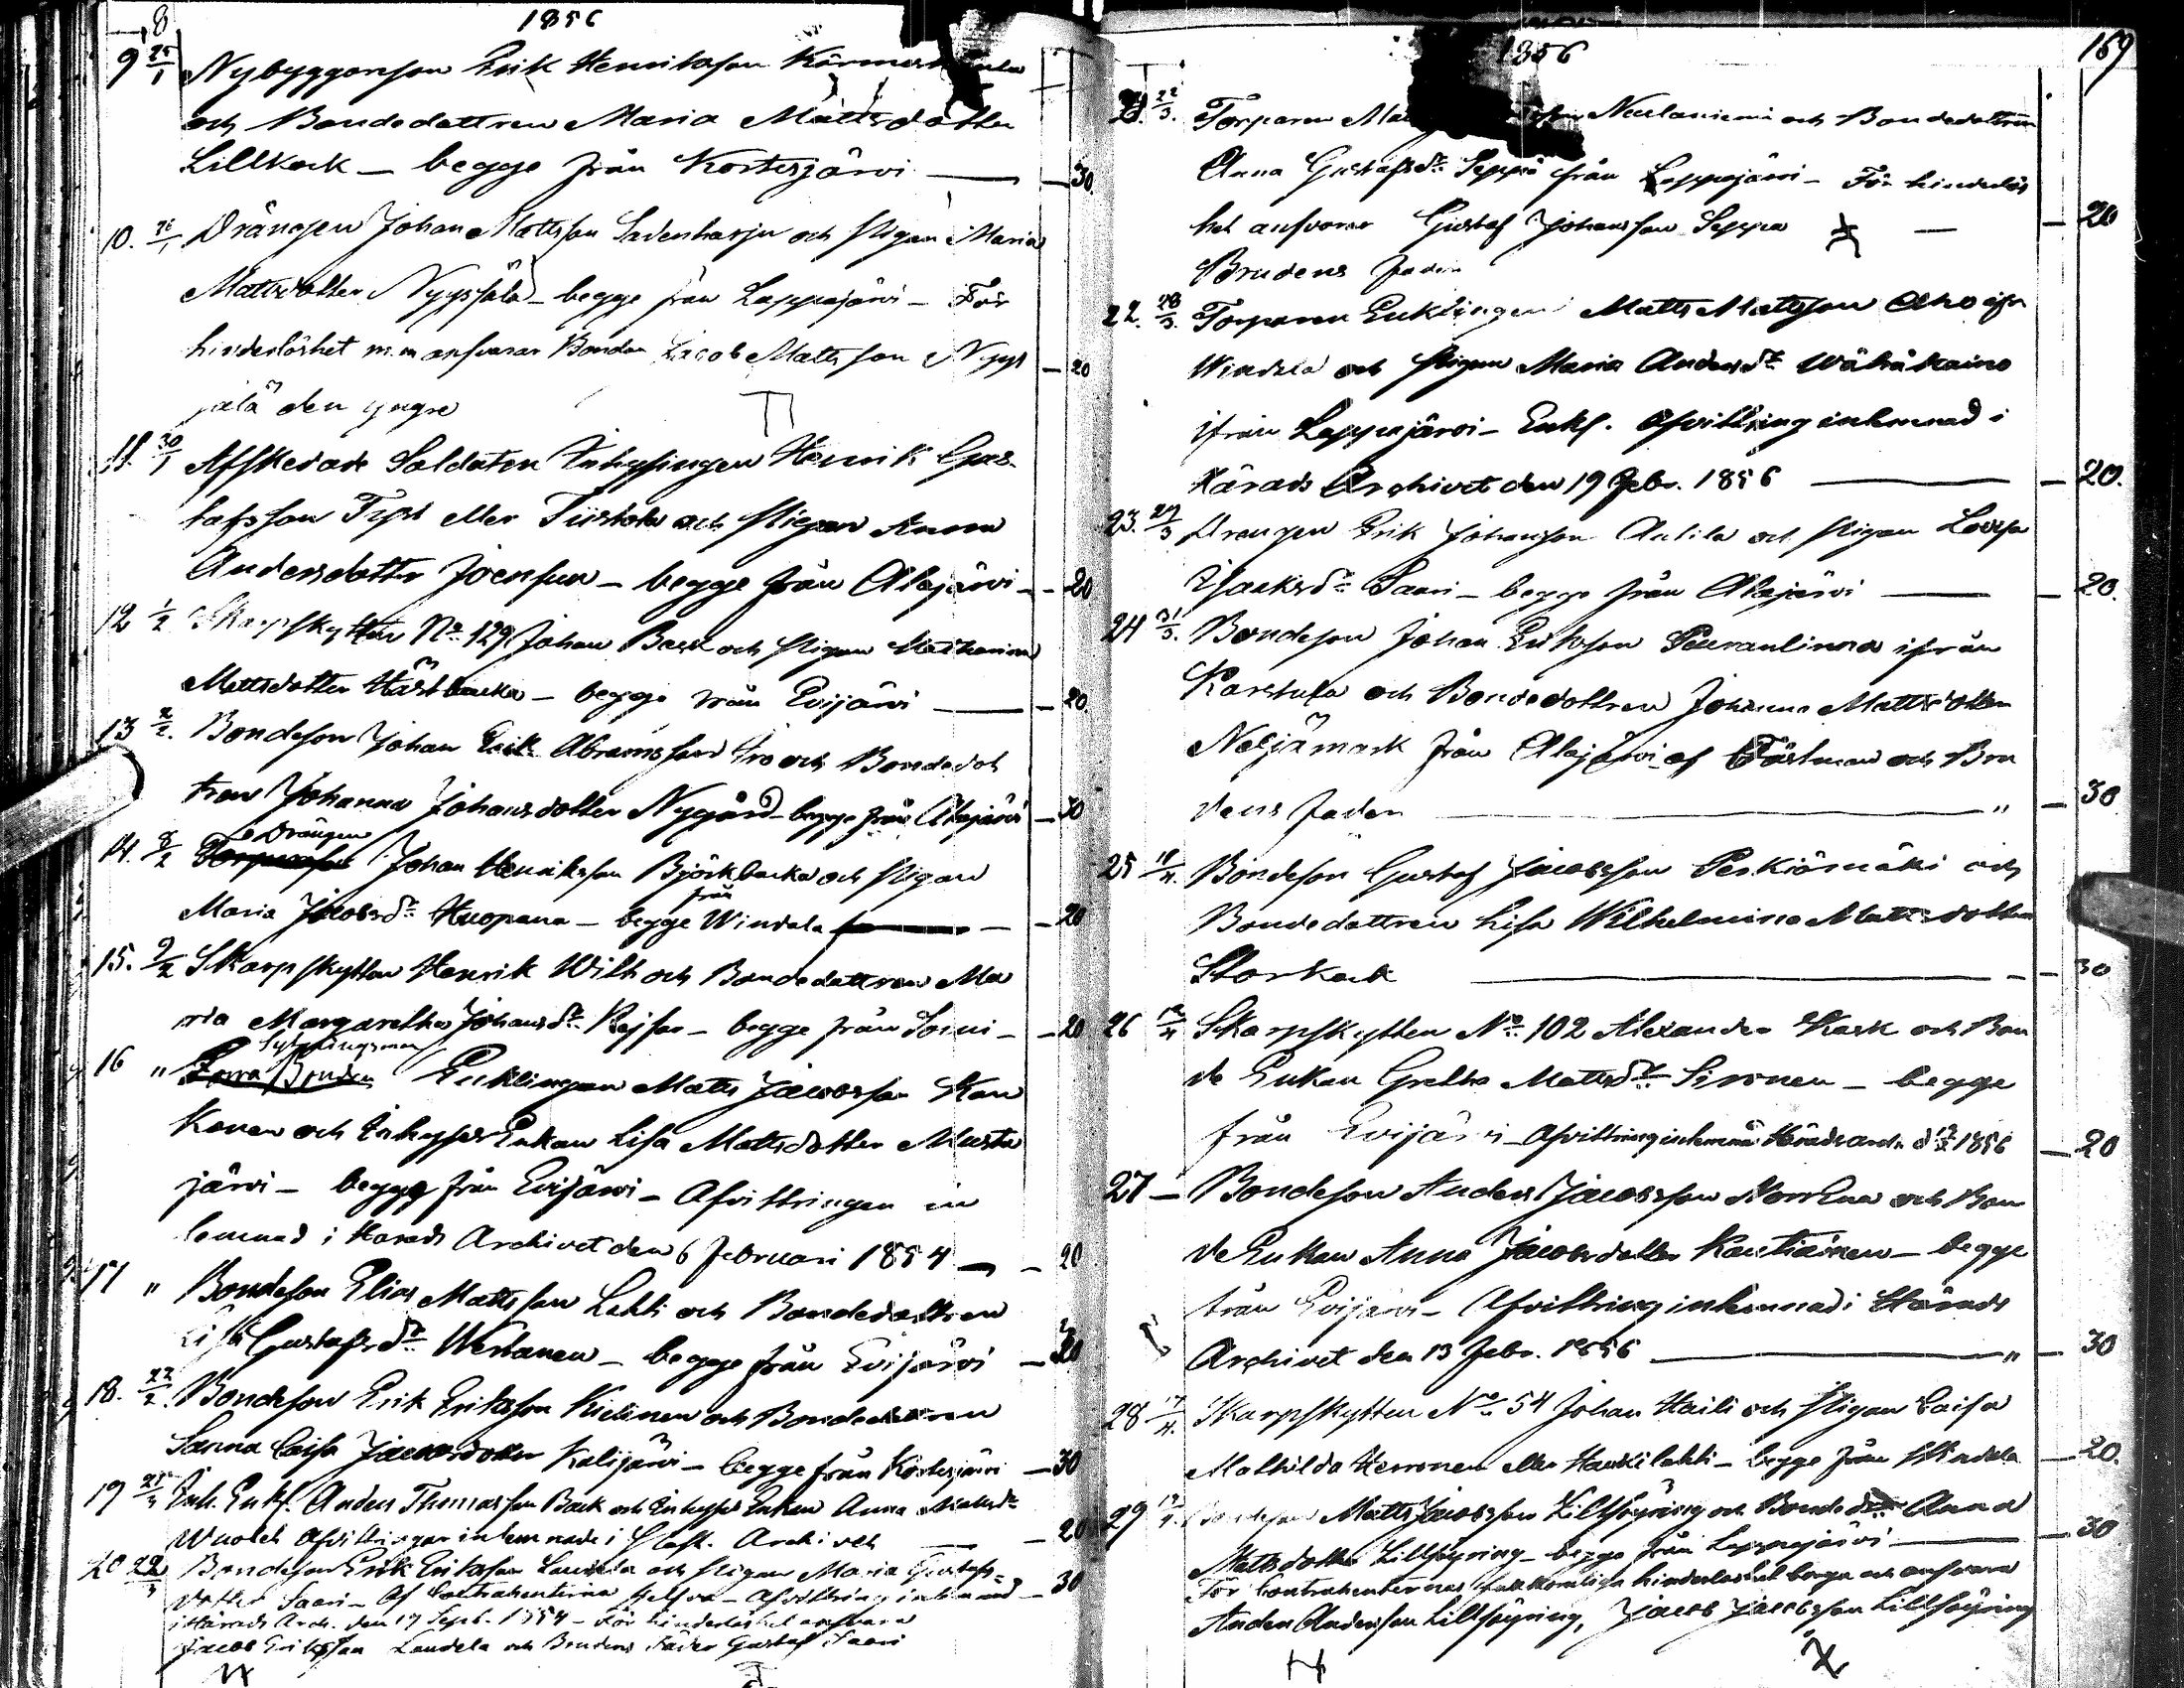 1856
9 25/1 Nybyggarson Erik Henriksson
och Bondedottren Maria Mattsdotter
Lillkack – begge från Kortesjärvi — 30.
10. 26/1 Drängen Johan Mattsson Sadenharju och Pigan Maria
Mattsdotter Nygyälä – begge från Lappajärvi – För
hinderlöshet m.m ansvarar Bonden Jacob Mattsson Nygy – 20
jälä den yngre
11. 30/1 Afskedade Soldaten Inhysingen Henrik Gus-
tafsson Tips eller Tiistola och Pigan Anna
Andersdotter Joensuu – begge från Alajärvi – 20
12 1/2 Skarpskytten No 129 Johan Bask och Pigan Katharina
Mattsdotter Hästbacka – begge från Evijärvi — 20.
13 2/2. Bondeson Johan Erik Abramsson och Bondedot
tren Johanna Johansdotter Nygård – begge från Alajärvi – 30
Drängen
14. 8/2 Johan Henriksson Björkbacka och Pigan
från
Maria Jacobsdr Huopana – begge Windala — 20
15. 9/2 Skarpskytten Henrik Wilh och Bondedottren Ma
ria Margaretha Johansdr – begge från Soini – 20
Sytningsman
16 " Bonden Enklingen Matts Jacobsson Kan
konen och Inhyses Enkan Lisa Mattsdotter Musta
järvi – begge från Evijärvi – Afvittringen in
lemnad i Härads Archivet den 6 Februari 1854 — 20
17 " Bondeson Elias Mattsson Lahti och Bondedottren
Lisa Gustafsdr Wertanen – begge från Evijärvi – 30
18. 22/2. Bondeson Erik Eriksson Kielinen och Bondedottren
Sanna Caisa Jacobsdotter Kalijärvi – begge från Kortesjärvi – 30
19 Inh. Enkl. Anders Thomasson Back och Inhyses Enkan Anna
Afvittringar inlemnade i Archivet — 20
20 22/3 Bondeson Erik Eriksson Laudala och Pigan Maria Gustafs-
dotter Saari – Af Contrahenterna sjelfva – Afvittring inlemnad – 30
i Härads Arch. den 17 Sept. 1854 – För hinderlöshet ansvara
Jacob Eriksson Laudala och Brudens Fader Gustaf Saari
1856 159
21. 22/3. Torparen Neulaniemi och Bondedottren
Anna Gustafsdr Seppä från Lappajärvi – För hinderlös
het ansvarar Gustaf Johansson Seppä — 20
Brudens fader
22. 28/3. Torparen Enklingen Matts Mattsson Aho ifr
Windala och Pigan Maria Andersdr Wähäkainu
ifrån Lappajärvi – Enkl. Afvittring inlemnad i
Härads Archivet den 19 Febr. 1856 — 20.
23. 29/3 Drängen Erik Johansson Antila och Pigan Lovisa
Isaksdr Saari – begge från Alajärvi — 20.
24 31/3. Bondeson Johan Eriksson Peuranlinna ifrån
Karstula och Bondedottren Johanna Mattsdotter
Neljämark från Alajärvi af Fästman och Bru
dens fader — " – 30
25 Bondeson Gustaf Jacobsson Perkiömäki och
Bondedottren Lisa Wilhelmina Mattsdotter
Storkack — 30
26 Skarpskytten No 102 Alexander Kask och Bon
de Enkan Gretha Mattsdr Sironen – begge
från Evijärvi – Afvittring inlemnad Häradsarch. 1856 – 20
27 – Bondeson Anders Jacobsson Norrena och Bon
de Enkan Anna Jacobsdotter Kaustiainen – begge
från Evijärvi – Afvittring inlemnad i Härads
Archivet den 13 Febr. 1856 — " – 30
28 17/4. Skarpskytten No 54 Johan Haili och Pigan Caisa
Mathilda Herronen eller Haukilahti – begge från Windala – 20.
29 17/4. Bondeson Matts Jacobsson Lillsöyring och Bondedr Anna
Mattsdotter Lillsöyring – begge från Lappajärvi — 30
För Contrahenternas fullkomliga hinderlöshet borga och ansvara
Anders Andersson Lillsöyring, Jacob Jacobsson Lillsöyring